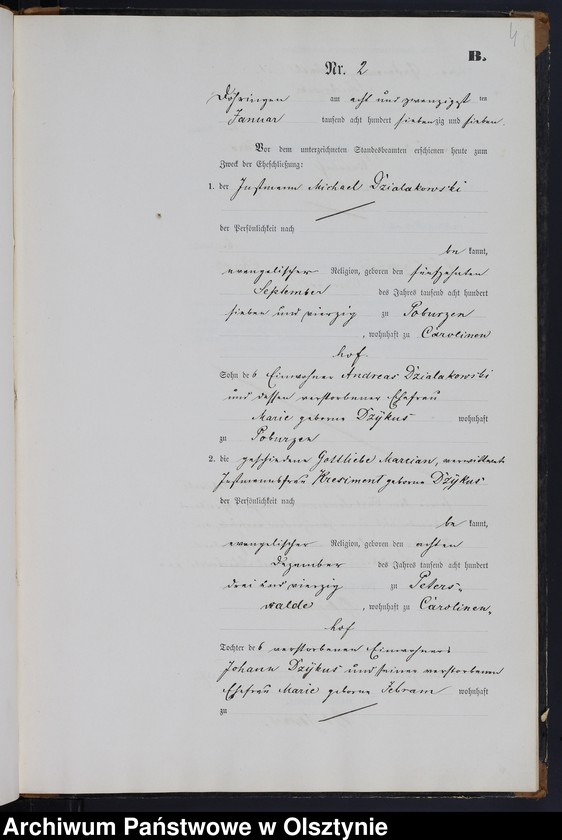 4
B.
Nr. 2
Döhringen am acht und zwanzigst ten
Januar tausend acht hundert siebenzig und sieben.
Vor dem unterzeichneten Standesbeamten erschienen heute zum
Zweck der Eheschließung:
1. der Instmann Michael Dzialakowski
der Persönlichkeit nach
be kannt,
evangelischer Religion, geboren den fünfzehnten
September des Jahres tausend acht hundert
sieben und vierzig zu Poburzen
, wohnhaft zu Carolinen
hof
Sohn des Einwohner Andreas Dzialakowski
und dessen verstorbener Ehefrau
Marie geborne Dzÿkus wohnhaft
zu Poburzen
2. die geschiedene Gottliebe Marcian, verwittwete
Instmannsfrau Kresiment geborne Dzÿkus
der Persönlichkeit nach
be kannt,
evangelischer Religion, geboren den achten
Dezember des Jahres tausend acht hundert
drei und vierzig zu Peters-
walde , wohnhaft zu Carolinen-
hof
Tochter des verstorbenen Einwohners
Johann Dzÿkus und seiner verstorbenen
Ehefrau Marie geborne Jebram wohnhaft
zu
Archiwum Państwowe w Olsztynie